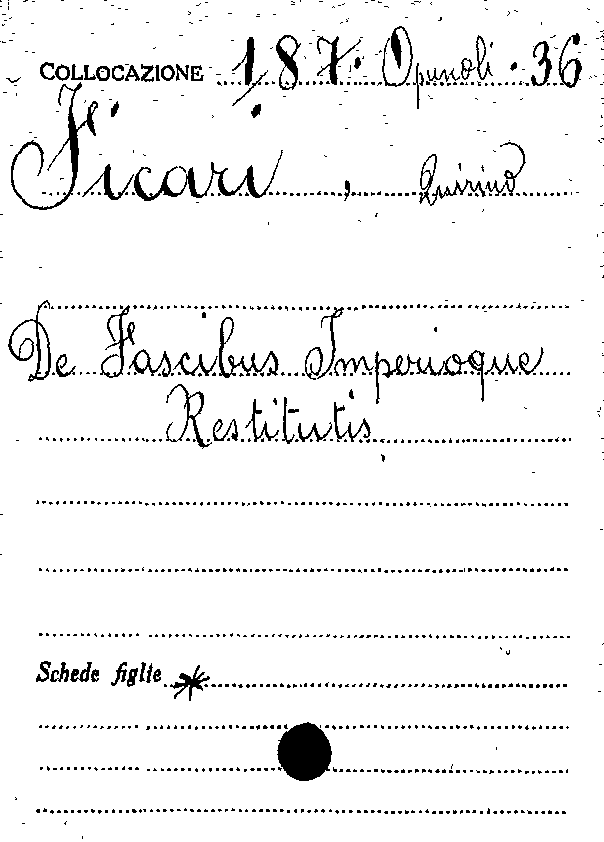 COLLOCAZIONE 187. Opuscoli. 36
Ficari, Quirino
De Fascibus Imperioque
Restitutis
Schede figlie *